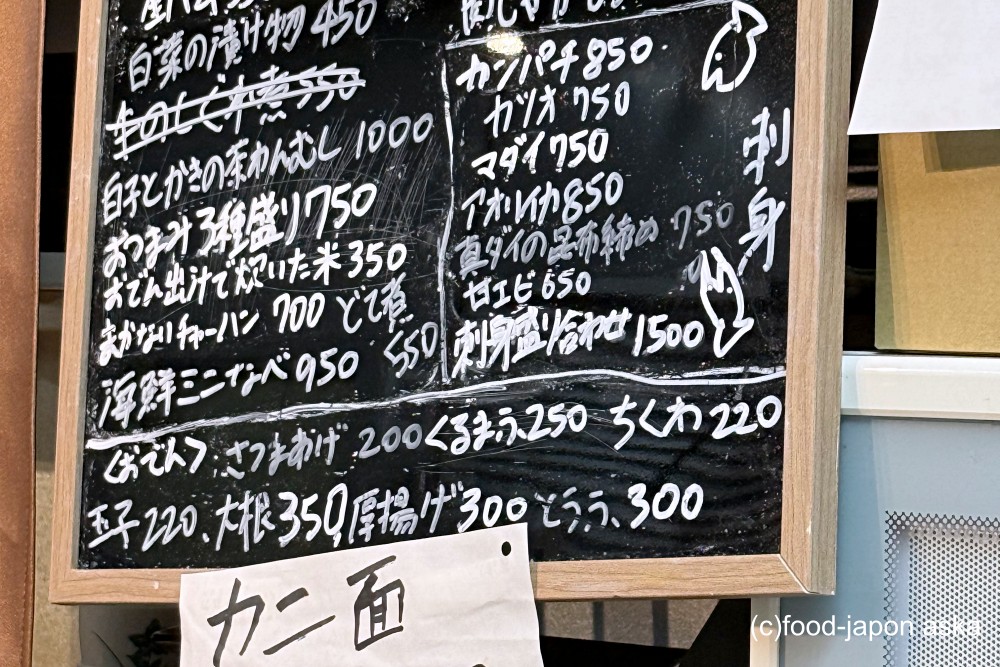 白菜の漬け物 450
白子とかきの茶わんむし 1000
おつまみ3種盛り750
おでん出汁で炊いた米 350
まかないチャーハン 700 どて煮 550
海鮮ミニなべ 950
カンパチ 850
カツオ 750
マダイ 750
アオリイカ 850
真ダイの昆布締め 750
甘エビ 650
刺身盛り合わせ 1500
刺身
〈おでん〉 さつまあげ 200 くるまふ 250 ちくわ 220
玉子 220、大根 350、厚揚げ 300 とうふ、300
カニ面
(c)food-japon aska